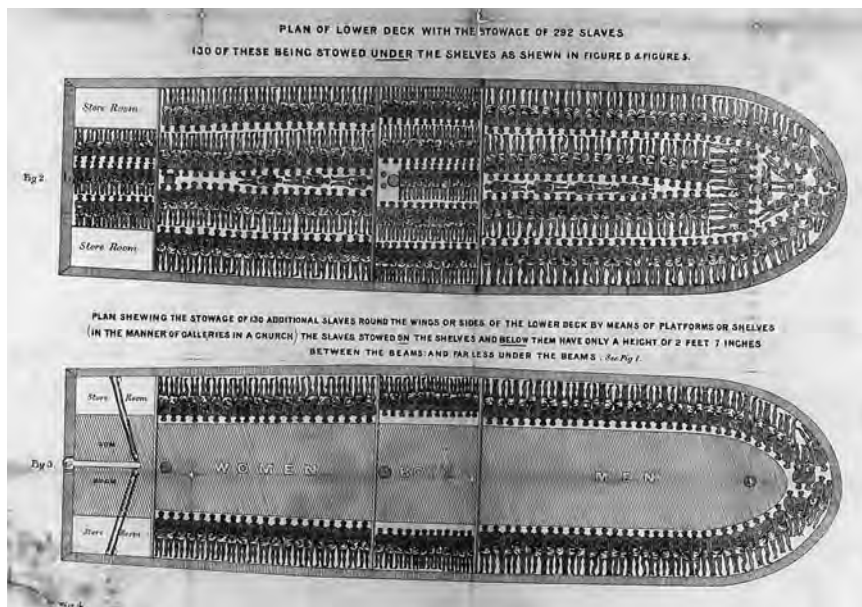 PLAN OF LOWER DECK WITH THE STOWAGE OF 292 SLAVES
130 OF THESE BEING STOWED UNDER THE SHELVES AS SHEWN IN FIGURE D & FIGURE 5.
Store Room
Fig 2.
Store Room
PLAN SHEWING THE STOWAGE OF 130 ADDITIONAL SLAVES ROUND THE WINGS OR SIDES OF THE LOWER DECK BY MEANS OF PLATFORMS OR SHELVES
(IN THE MANNER OF GALLERIES IN A CHURCH) THE SLAVES STOWED ON THE SHELVES AND BELOW THEM HAVE ONLY A HEIGHT OF 2 FEET 7 INCHES
BETWEEN THE BEAMS: AND FAR LESS UNDER THE BEAMS. See Fig 1.
Store Room
Fig 3.
WOMEN
MEN
Store Room
Fig 4